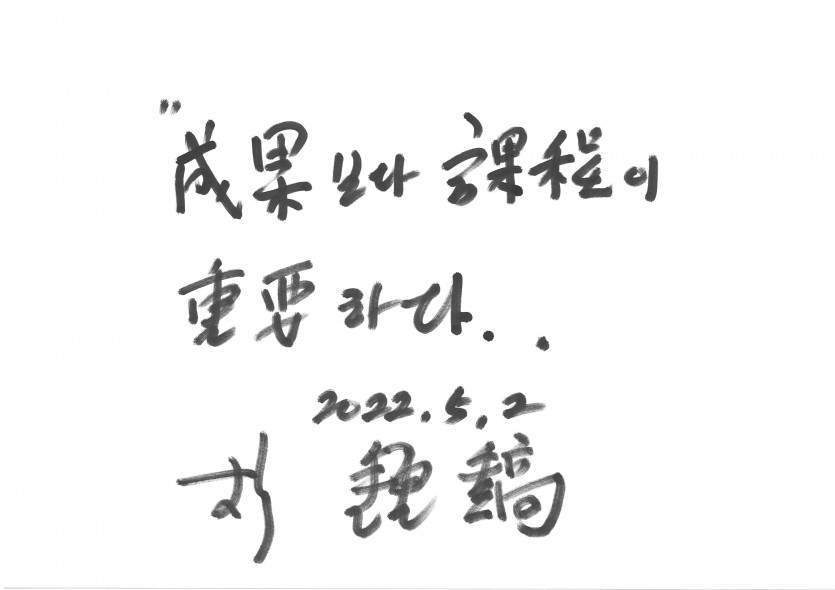 "成果보다 課程이
重要하다..
2022.5.2